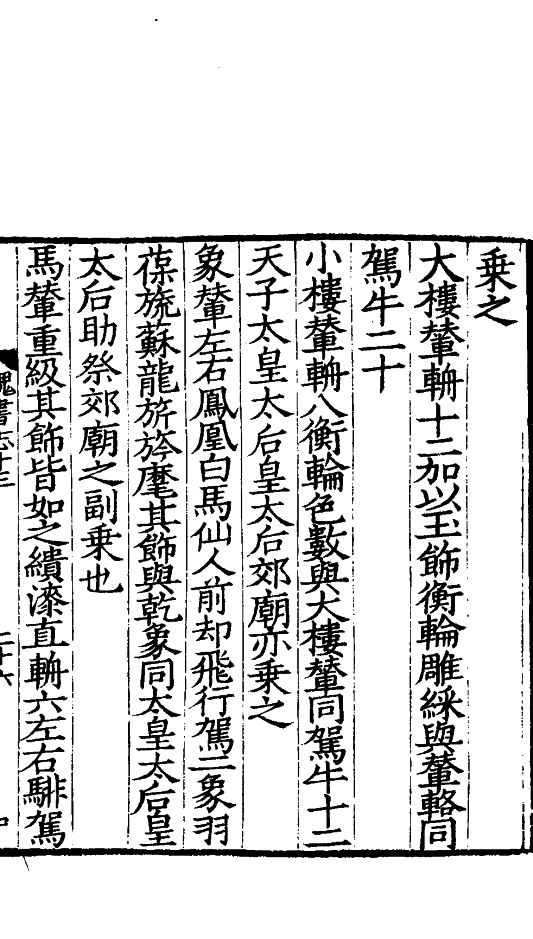 乗之
大樓輦輈十二加以玉飾衡輪雕綵與輦輅同
駕牛二十
小樓輦輈八衡輪色數與大樓輦同駕牛十二
天子太皇太后皇太后郊廟亦乗之
象輦左右鳳凰白馬仙人前却飛行駕二象羽
葆旒蘇龍旂旍麾其飾與乾象同太皇太后皇
太后助祭郊廟之副乗也
馬輦重級其飾皆如之繢漆直輈六左右騑駕
魏書志十三
二十六